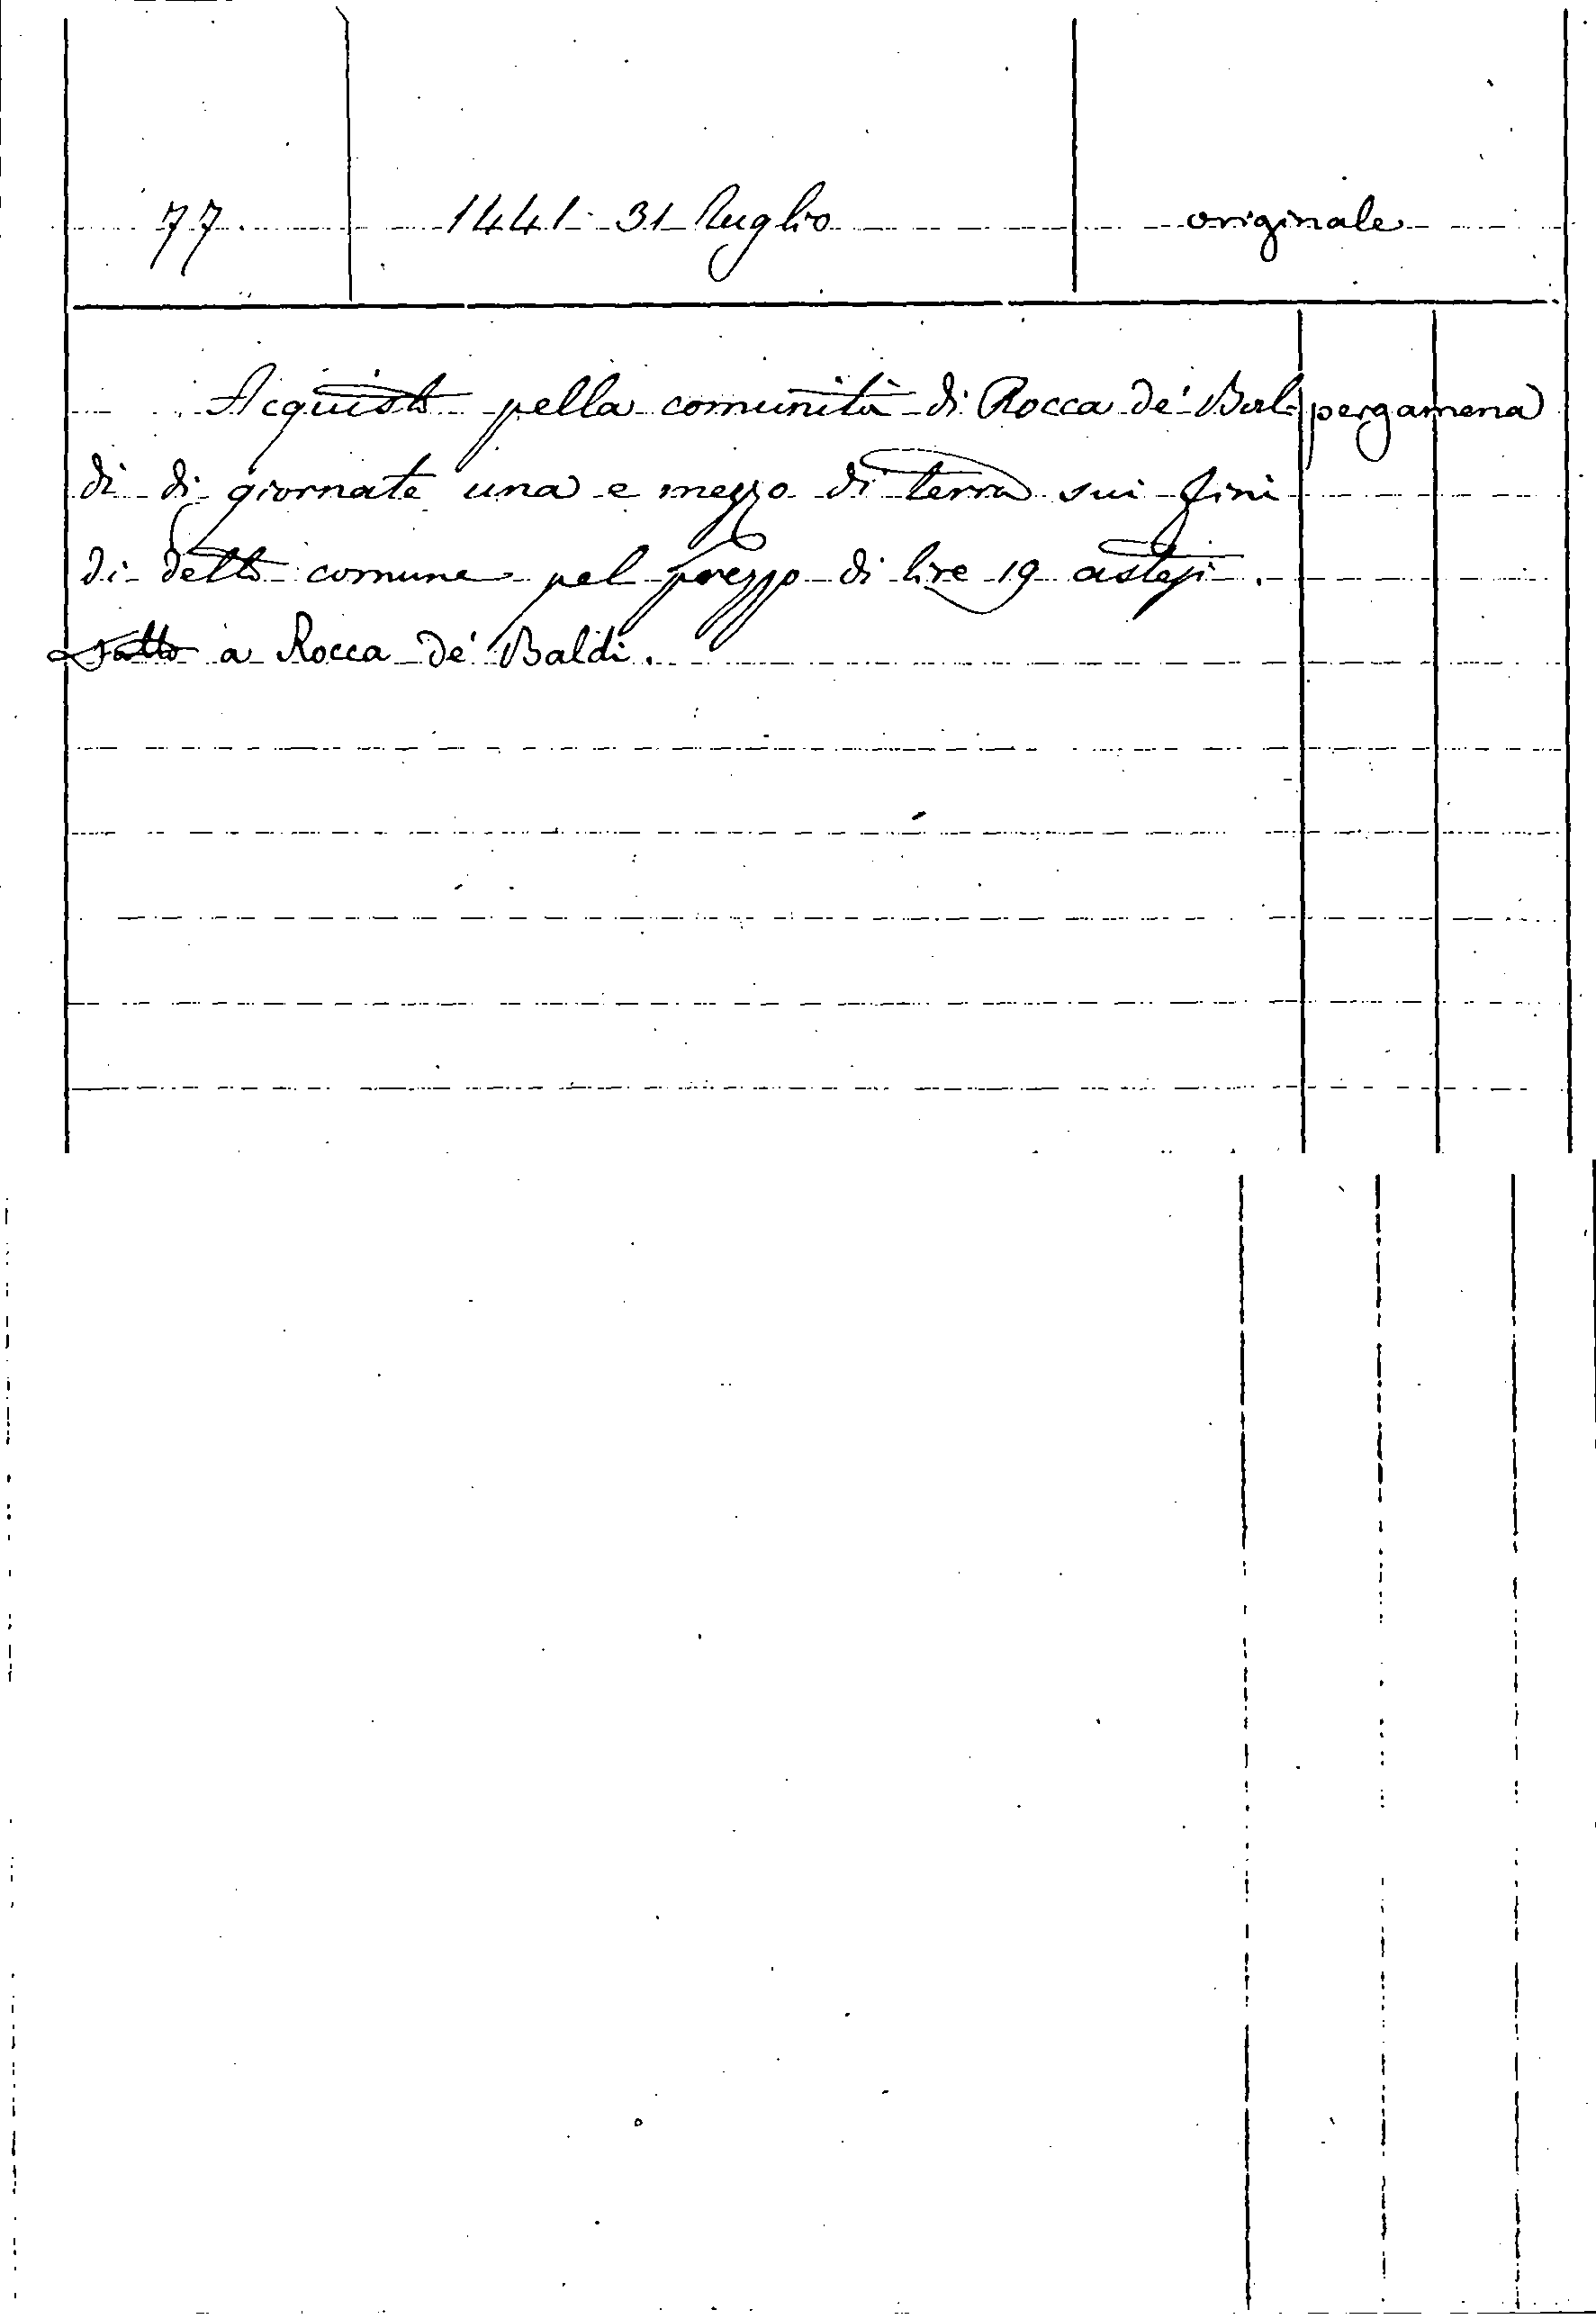 77. 1441- 31 luglio originale
Acquisto pella comunità di Rocca de' Bal- pergamena
di di giornate una e mezzo di terra sui fini
di detto comune pel prezzo di lire 19 astesi.
Fatto a Rocca de' Baldi.